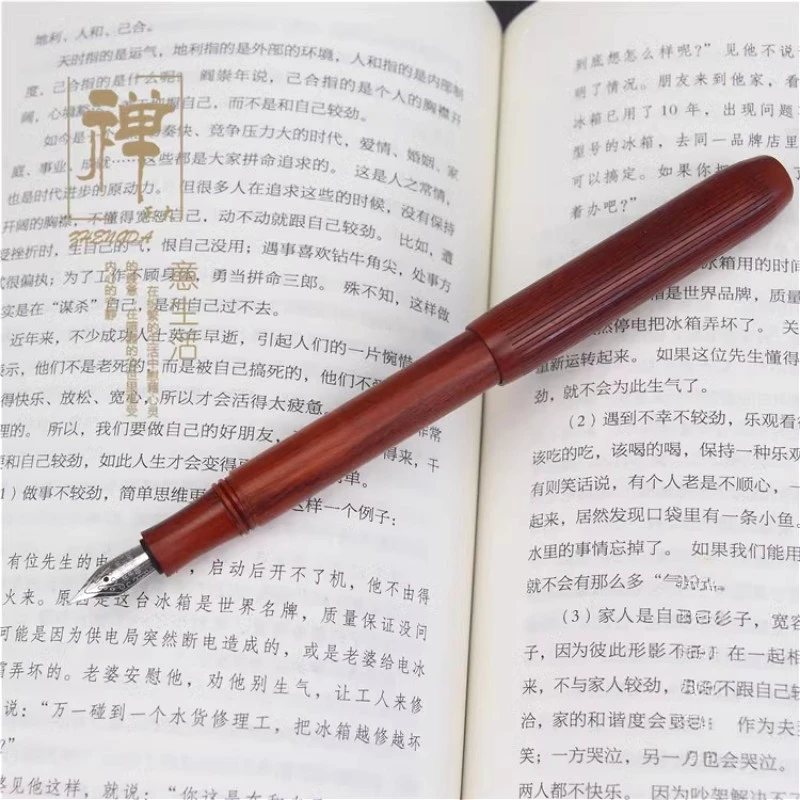 地利、人和、己合。
天时指的是运气，地利指的是外部的环境，人和指的是内部制
度，己合指的是什么呢？阎崇年说，己合指的是个人的胸襟开
阔，心境
自己，而不是和自己较劲。
如今是
奏快、竞争压力大的时代，爱情、婚姻、家
庭、事业、成就……这些都是大家拼命追求的。这是人之常情，
也是时代进步的原动力。但很多人在追求这些的时候，没有保持
开阔的胸襟，不懂得宽恕自己，动不动就跟自己较劲。比如，遭
受挫折时，生自己的气，恨自己没用；遇事喜欢钻牛角尖，处事方
式很偏执；为了工作不顾身体，勇当拼命三郎。殊不知，这样做
实是在“谋杀”自己，是和自己过不去。
近年来，不少成功人士英年早逝，引起人们的一片惋惜
表示，他们不是老死的，而是被自己搞死的，他们不
得快乐、放松、宽心，所以才会活得太疲惫。
理的。所以，我们要做自己的好朋友，
常
要和自己较劲，如此人生才会变得
得来，干
1）做事不较劲，简单思维更
简单。
这样一个例子：
有位先生的电
，启动后开不了机，他不由得
火来。原因是这台冰箱是世界名牌，质量保证没问
可能是因为供电局突然断电造成的，或是老婆给电冰
箱弄坏的。老婆安慰他，劝他别生气，让工人来修
说：“万一碰到一个水货修理工，把冰箱越修越坏
？”
婆见他这样，就说：“你这是在和自
禅
正大
ZHENGDA
意生活
到底想怎么样呢？”见他不说
明了情况。朋友来到他家，看
冰箱已用了10年，出现问题
型号的冰箱，去同一品牌店里
可以搞定。如果你把
着办吧？”
冰箱用的时间
是世界品牌，质量
然停电把冰箱弄坏了。关
重新运转起来。如果这位先生懂得
劲，就不会为此生气了。
（2）遇到不幸不较劲，乐观看
该吃的吃，该喝的喝，保持一种乐观
有则笑话说，有个人老是不顺心，一
起来，居然发现口袋里有一条小鱼。
水里的事情忘掉了。如果我们能用
就不会有那么多“气
（3）家人是自己的影子，宽容
子，因为彼此形影不离，在一起相
来，不与家人较劲，是不跟自己较
洽，家的和谐度会
作为夫
笑；一方哭泣，另一方也会哭泣。
两人都不快乐。因为吵架解决不了